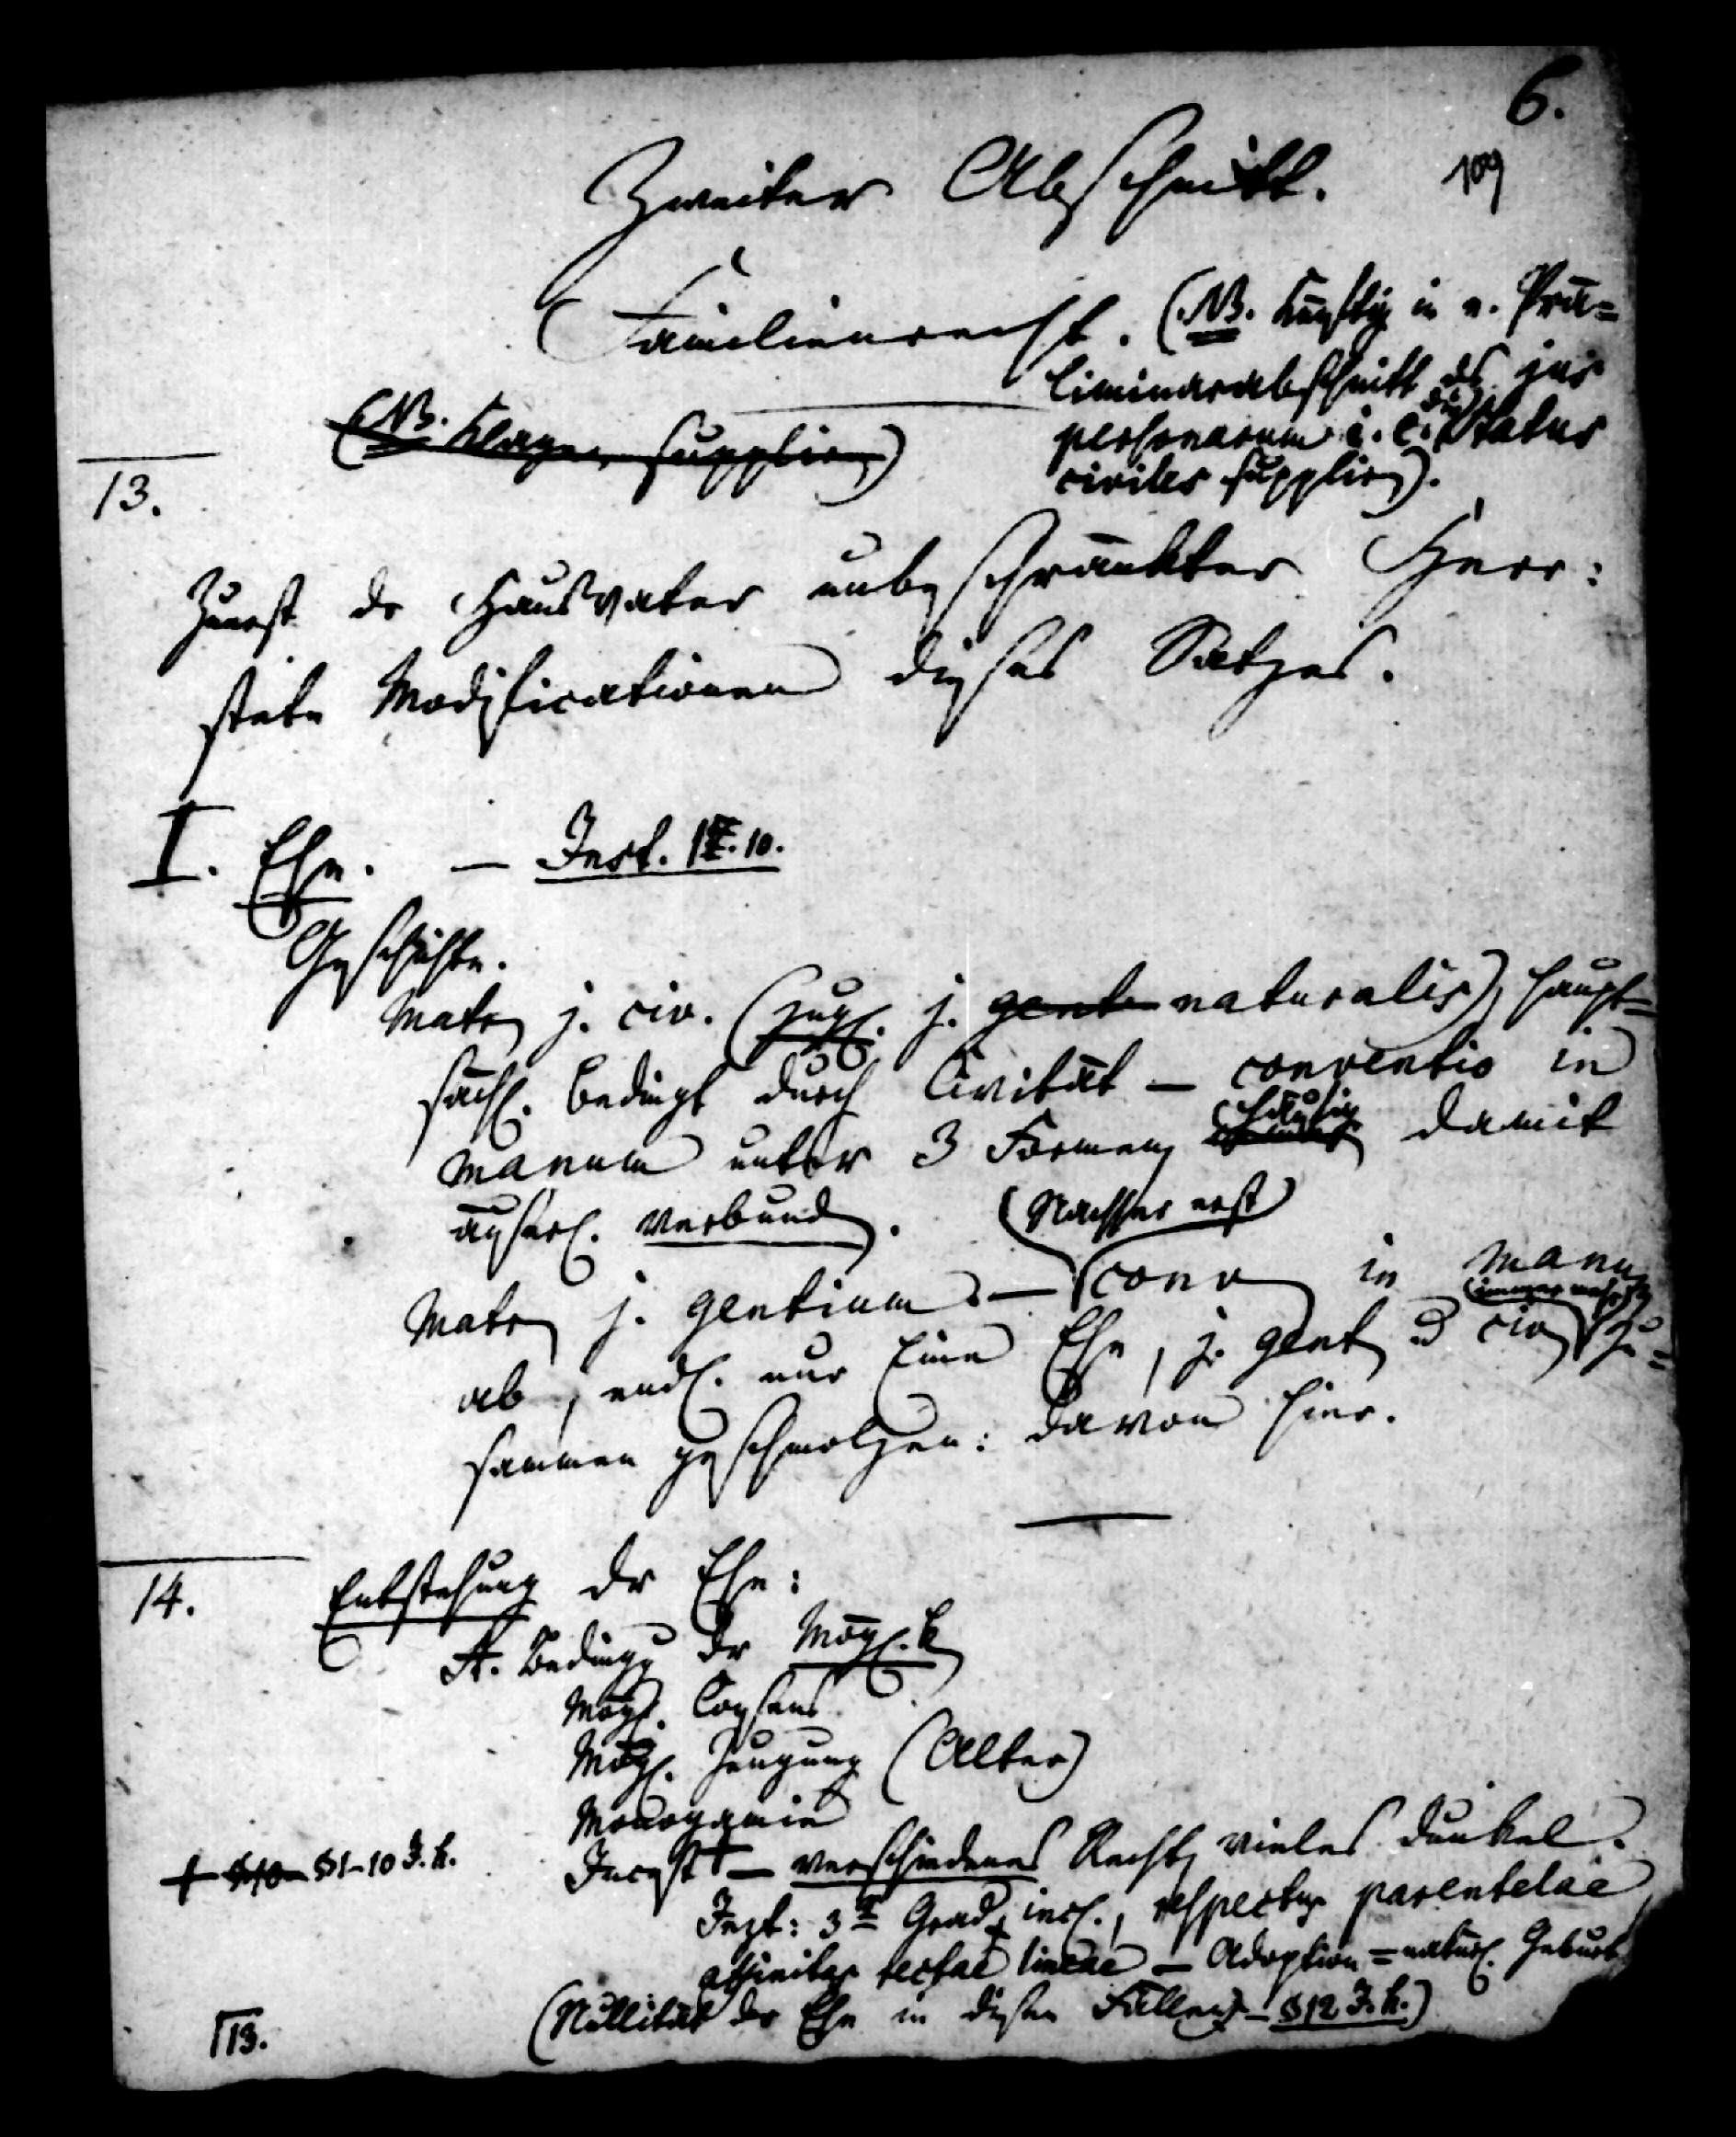 6.
109
Zweiter Abschnitt.
Familienrecht. (NB. künftig in e. Prä=
liminarabschnitt das jus
personarum i. e. die status
civiles supplirn).
(NB. Klagen supplirn)
13.
Zuerst der Hausvater unbeschränkter Herr:
stete Modificationen dieses Satzes.
I. Ehe. — Inst. I. 10.
Geschichte.
Matr j. civ. (zugl. j. gent naturalis), haupt=
sächl. bedingt durch Civität — conventio in
manum unter 3 Formen häufig damit
äußerl. verbunden.
(Nachher erst)
Matr j. gentium — conv in manum
ab, endl. nur Eine Ehe, j. gent u civ (immer mehr) zu=
sammen geschmolzen: davon hier.
14.
Entstehung der Ehe:
A. Bedingg der Möglk
Mögl. Consens
Mögl. Zeugung (Alter)
Monogamie
+ §10 §1-10 J. h.
Incest + — verschiedenes Recht, vieles dunkel.
Jezt: 3r Grad incl., respectus parentelae,
affinitas rectae lineae — Adoption = natürl. Geburt
(Nullität der Ehe in diesen Fällen — §12 J. h.)
113.